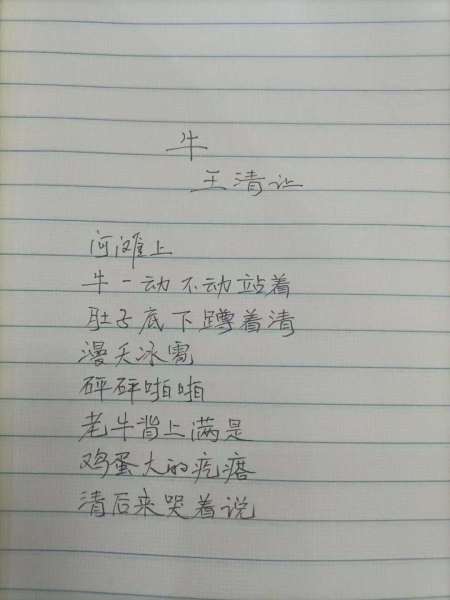 牛
王清让
河滩上
牛一动不动站着
肚子底下蹲着清
漫天冰雹
砰砰啪啪
老牛背上满是
鸡蛋大的疙瘩
清后来哭着说